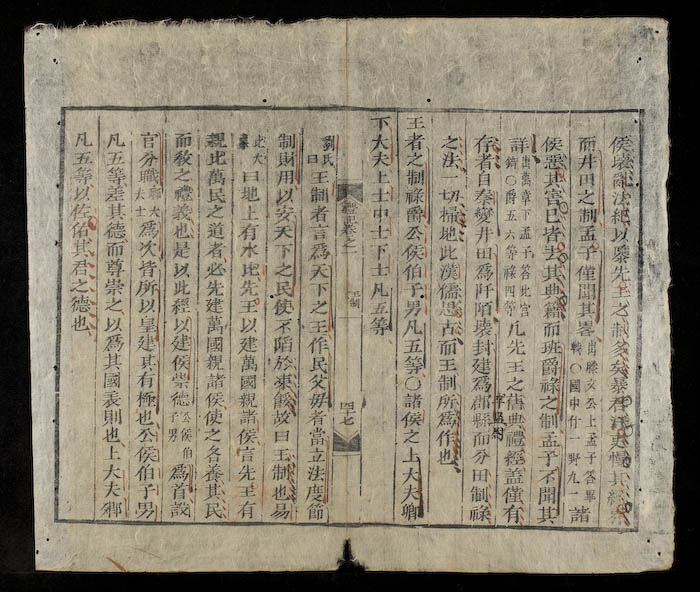 侯壞亂法紀以隳先王之制多矣暴君汙吏慢其經界
而井田之制孟子僅聞其畧出滕文公上孟子答畢戰〇國中什一野九一諸
侯惡其害己皆去其典籍而班爵祿之制孟子不聞其
詳出萬章下孟子答北宮錡〇爵五六等祿四等凡先王之舊典禮經盖僅有
存者自秦變井田為阡陌壞封建為郡縣而分田制祿
之法一切掃地此漢儒思古而王制所為作也
王者之制祿爵公侯伯子男凡五等〇諸侯之上大夫卿
下大夫上士中士下士凡五等
禮記卷之一
王制
四十七
劉氏曰王制者言為天下之王作民父母者當立法度節
制財用以安天下之民使不陷於凍餒故曰王制也易
比大象曰地上有水比先王以建萬國親諸侯言先王有
親比萬民之道者必先建萬國親諸侯使之各養其民
而敎之禮義也是以此經以建侯崇德公侯伯子男為首設
官分職卿大夫士為次皆所以皇建其有極也公侯伯子男
凡五等差其德而尊崇之以為其國表則也上大夫卿
凡五等以佐佑其君之德也